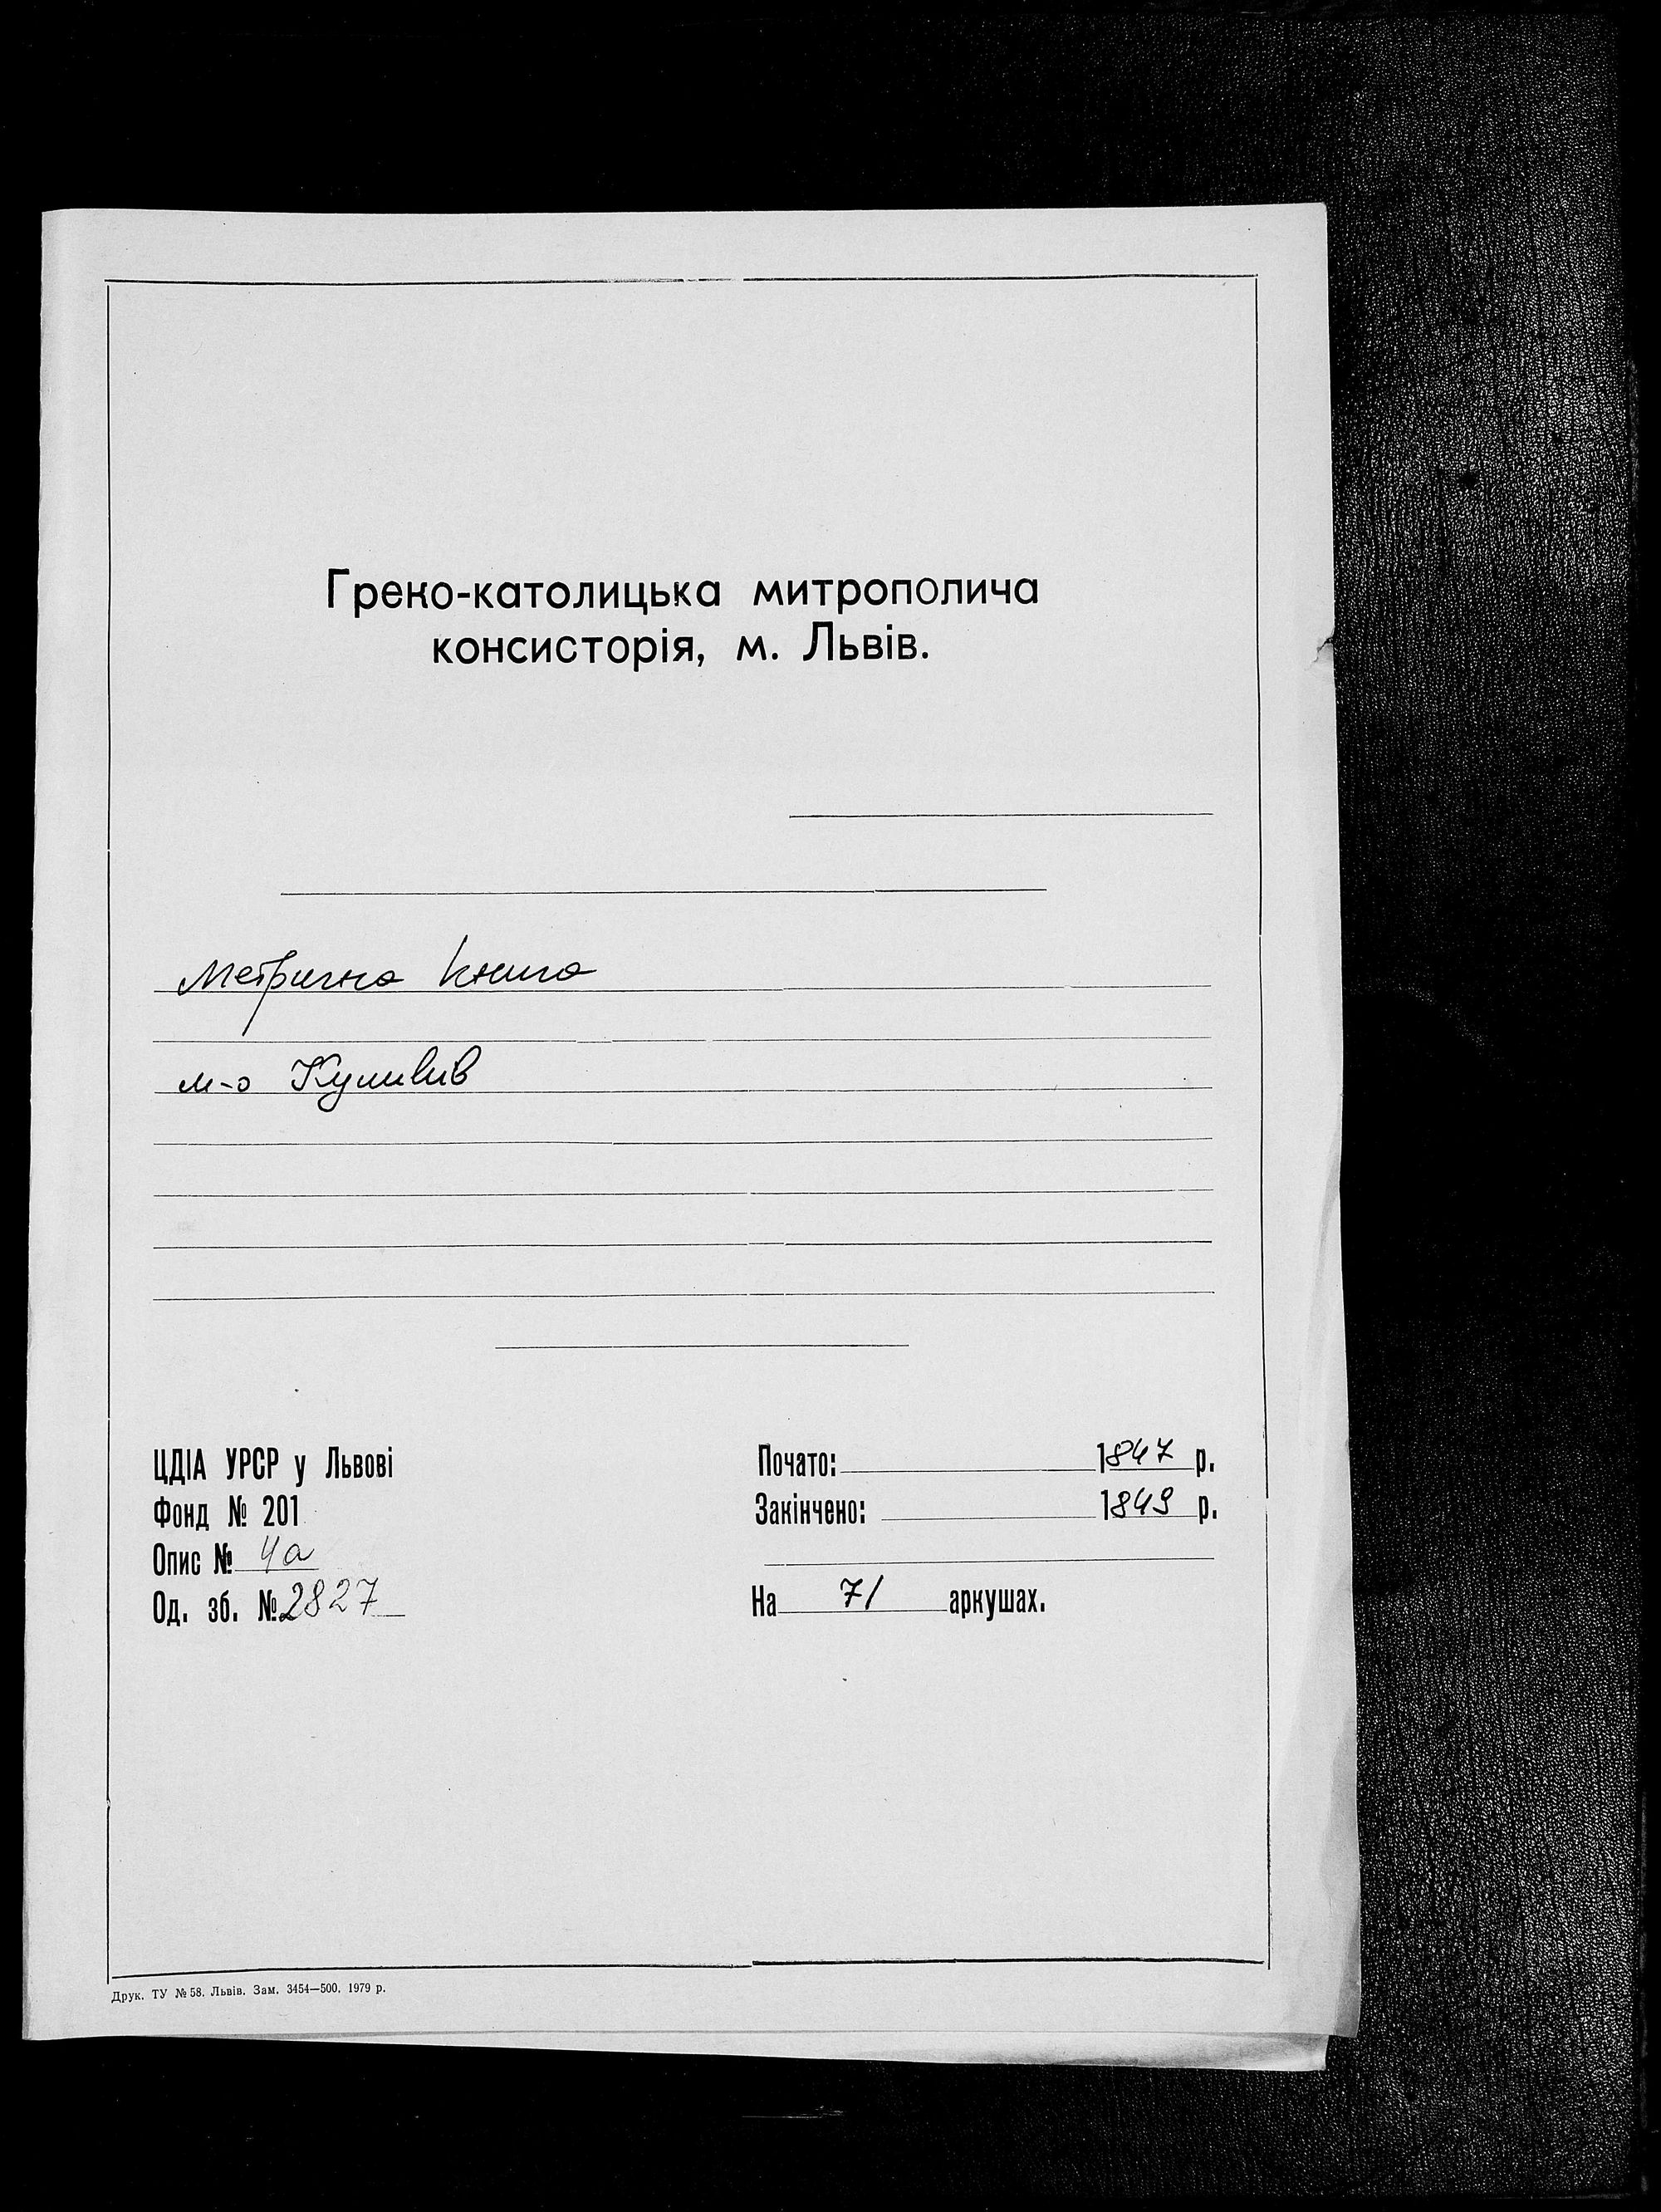 Греко-католицька митрополича
консисторія, м. Львів.
Метрична книга
м-о Куликів
ЦДІА УРСР у Львові
Фонд № 201
Опис № 4а
Од. зб. № 2827
Почато: 1847 р.
Закінчено: 1849 р.
На 71 аркушах.
Друк. ТУ № 58. Львів. Зам. 3454—500. 1979 р.